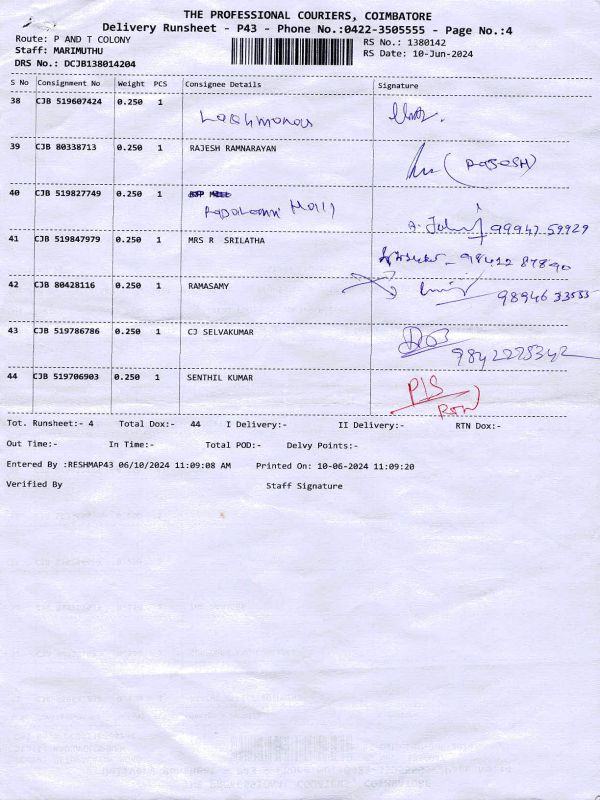 THE PROFESSIONAL COURIERS, COIMBATORE
Delivery Runsheet - P43 - Phone No.:0422-3505555 - Page No.:4
Route: P AND T COLONY RS No.: 1380142
Staff: MARIMUTHU RS Date: 10-Jun-2024
DRS No.: DCJB138014204
S No Consignment No Weight PCS Consignee Details Signature
38 CJB 519607424 0.250 1
39 CJB 80338713 0.250 1 RAJESH RAMNARAYAN (RAJESH)
40 CJB 519827749 0.250 1
A. John 99947 59929
41 CJB 519847979 0.250 1 MRS R SRILATHA
98412 87890
42 CJB 80428116 0.250 1 RAMASAMY
98946 33555
43 CJB 519786786 0.250 1 CJ SELVAKUMAR
9842275342
44 CJB 519706903 0.250 1 SENTHIL KUMAR P/S
RTN
Tot. Runsheet:- 4 Total Dox:- 44 I Delivery:- II Delivery:- RTN Dox:-
Out Time:- In Time:- Total POD:- Delvy Points:-
Entered By :RESHMAP43 06/10/2024 11:09:08 AM Printed On: 10-06-2024 11:09:20
Verified By Staff Signature